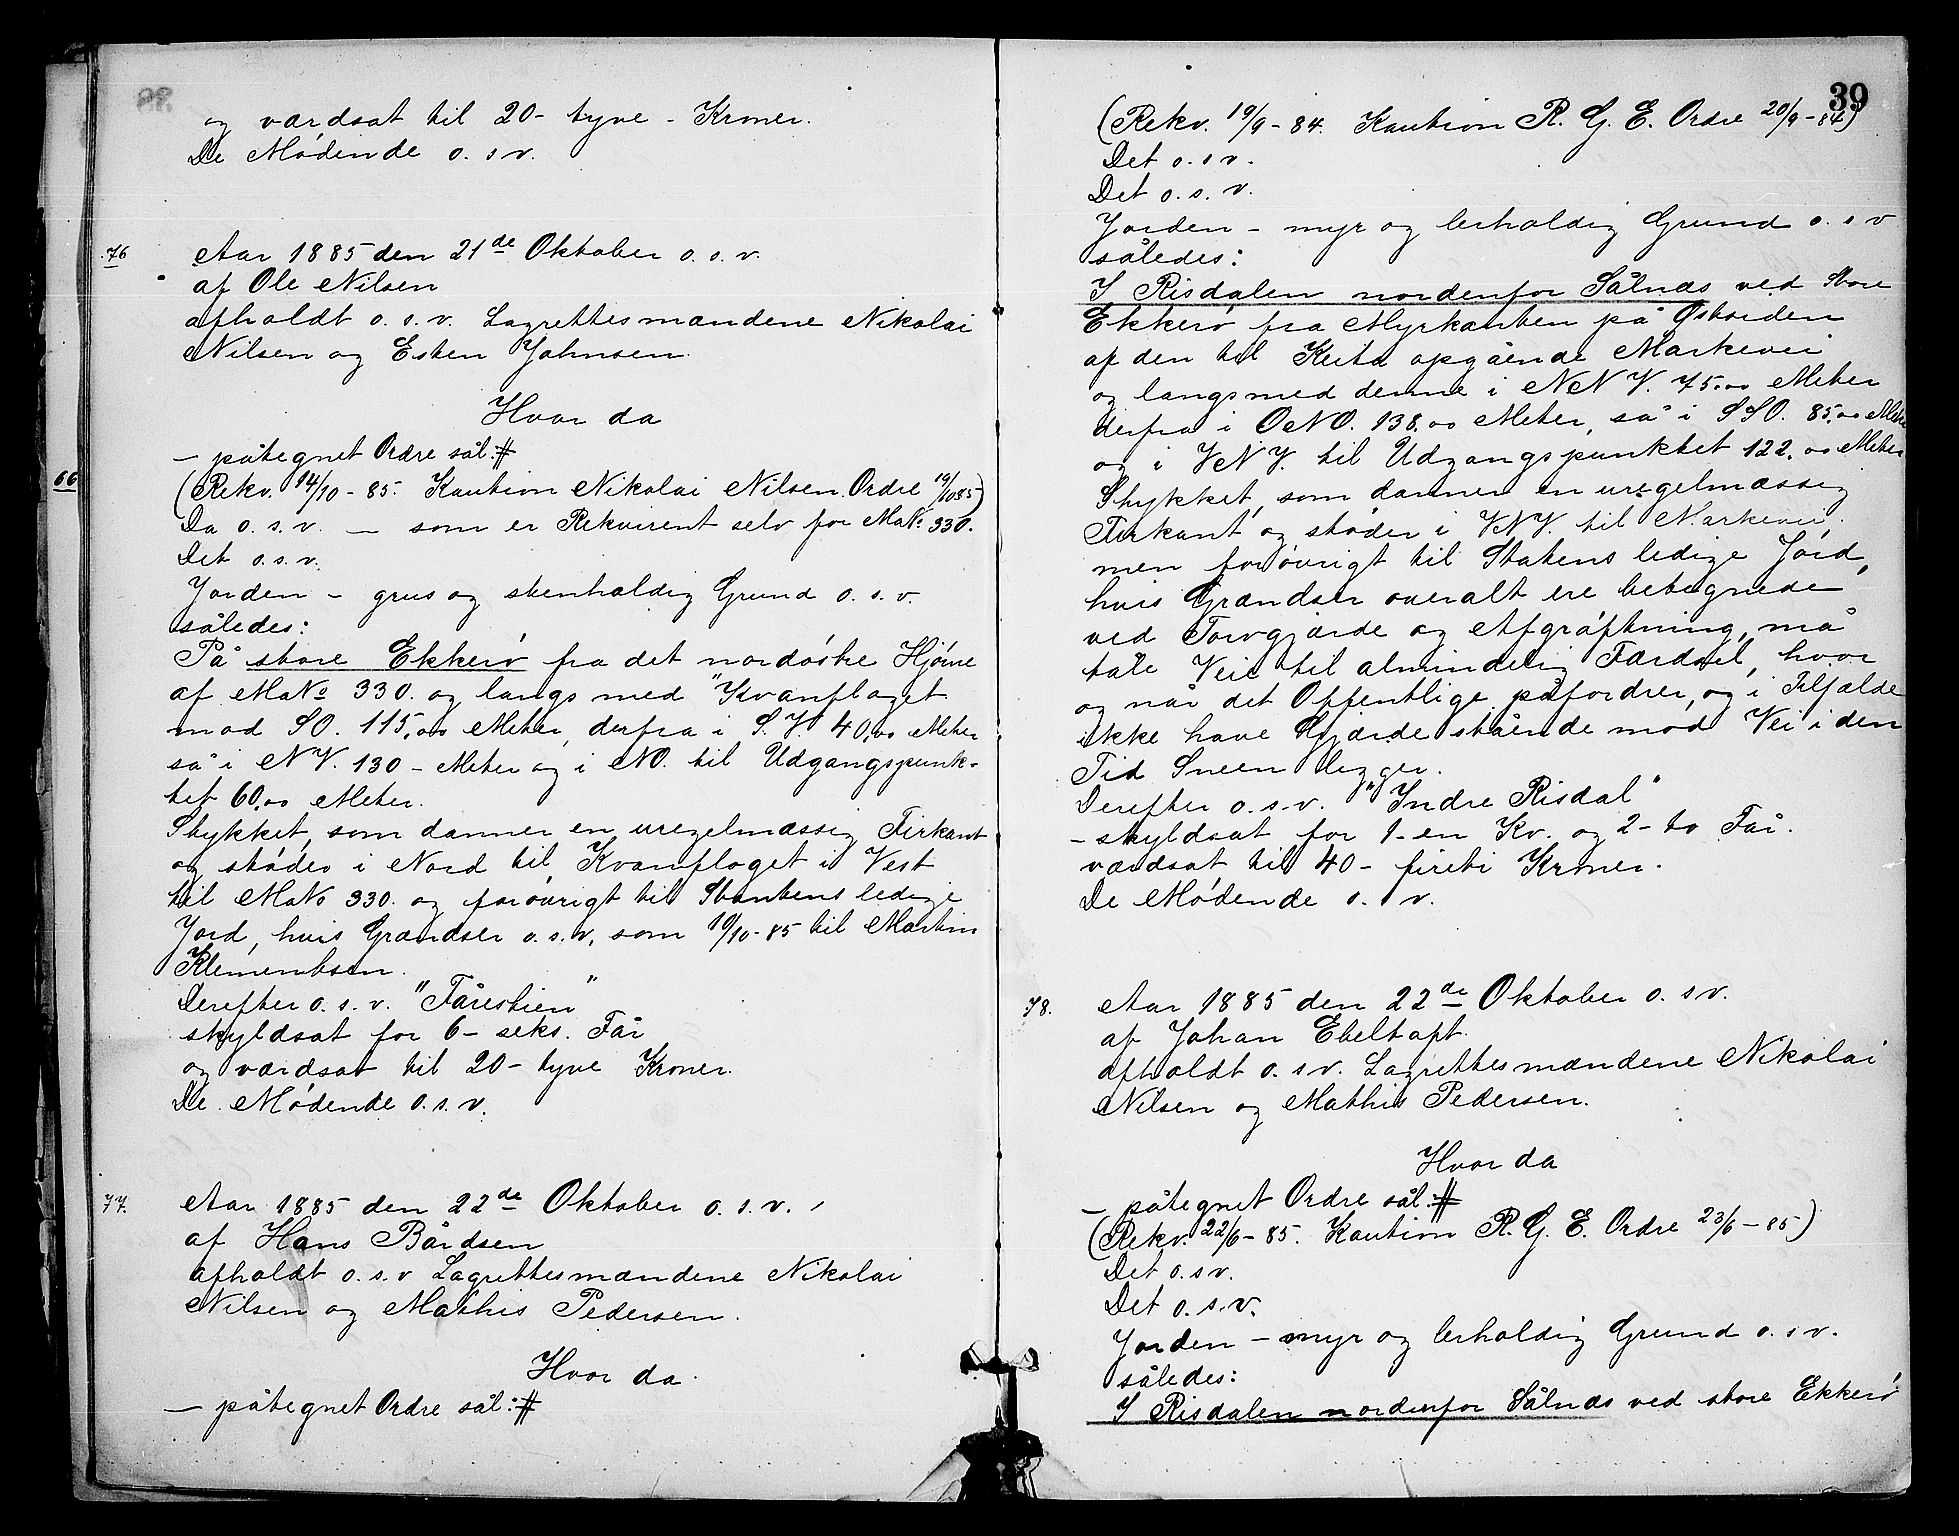 og værdsat til 20- tyve - Kroner.
De Mødende o. s v.
76 Aar 1885 den 21de Oktober o. s. v.
af Ole Nilsen
afholdt o. s. v. Lagrettesmændene Nikolai
Nilsen og Esten Johnsen.
Hvor da
— påtegnet Ordre sål. #
66 (Rekv. 14/10 - 85. Kaution Nikolai Nilsen. Ordre 19/10 85)
Da o. s. v. — som er Rekvirent selv for MaNo 330.
Det o. s. v.
Jorden - grus og stenholdig Grund o. s. v.
således:
På store Ekkerö fra det nordöstre Hjörne
af MaNo 330. og langs med "Kvanfloget
mod SO. 115,00 Meter, derfra i S. V. 40,00 Meter
så i NV. 130 - Meter og i NO. til Udgangspunk-
tet 60,00 Meter.
Stykket, som danner en uregelmæssig Firkant
og støder i Nord til Kvanfloget i Vest
til MaNo 330. og forøvrigt til Stantens ledige
Jord, hvis Grændser o. s. v, som 19/10-85 til Martin
Klementsen.
Derefter o. s. v. "Fårestien"
skyldsat for 6- seks. Får
og værdsat til 20- tyve Kroner.
De. Mødende o. s. v.
77. Aar 1885 den 22de Oktober o. s. v.,
af Hans Bårdsen
afholdt o. s. v Lagrettesmændene Nikolai
Nilsen og Mathis Pedersen.
Hvor da.
— påtegnet Ordre sål: #
39
(Rekv. 19/9 - 84. Kaution R. G. E. Ordre 20/9 - 84)
Det o. s v.
Det o. s. v.
Jorden - myr og lerholdig Grund o. s v
således:
I Risdalen nordenfor Sålnæs ved Store
Ekkerö fra Myrkanten på Østsiden
af den til opgående Markevei
og langsmed denne i NNV. 75.00 Meter
derfra i ONO. 138.00 Meter, så i SSO. 85,00 Meter
og i VNV. til Udgangspunktet 122.00 Meter
Stykket, som danner en uregelmæssig
Firkant og støder i VNV. til Markevei.
men forövrigt til Statens ledige Jord,
hvis Grændser overalt ere betegnede
ved Torvgjærde og Afgrøftning, må
tåle Veie til almindelig Færdsel, hvor
og når det Offentlige påfordrer, og i Tilfælde
ikke have Gjærde stående mod Vei i den
Tid Sneen ligger.
Derefter o. s. v. "Indre Risdal"
- skyldsat for 1- en Kv. og 2- to Får.
værdsat til 40- firti Kroner.
De Mødende o. s v.
78. Aar 1885 den 22de Oktober o. s v.
af Johan Ebeltoft.
afholdt o. s v. Lagrettesmændene Nikolai
Nilsen og Mathis Pedersen.
Hvor da
— påtegnet Ordre sål. #
(Rekv. 22/6 - 85. Kaution R. G. E. Ordre 23/6 - 85)
Det o. s v.
Det o. s. v.
Jorden - myr og lerholdig Grund o. s v.
således:
I Risdalen nordenfor Sålnæs ved store Ekkerö